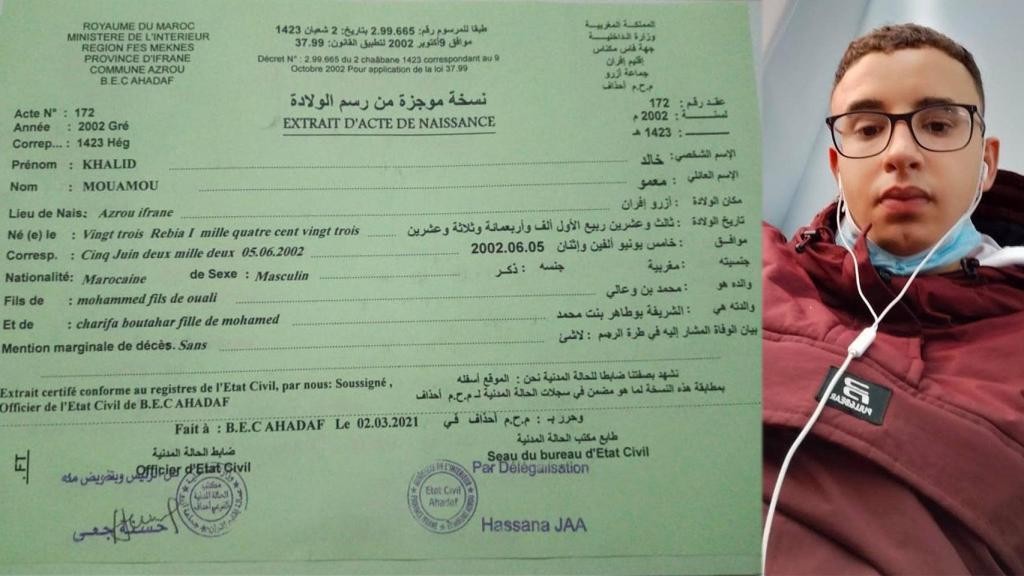 ROYAUME DU MAROC
MINISTERE DE L'INTERIEUR
REGION FES MEKNES
PROVINCE D'IFRANE
COMMUNE AZROU
B.E.C AHADAF
طبقا للمرسوم رقم: 2.99.665 بتاريخ: 2 شعبان 1423
موافق 9أكتوبر 2002 لتطبيق القانون: 37.99
Décret N° : 2.99.665 du 2 chaâbane 1423 correspondant au 9
Octobre 2002 Pour application de la loi 37.99
المملكة المغربية
وزارة الداخلية
جهة فاس مكناس
إقليم إفران
جماعة أزرو
م.ح.م أحداف
نسخة موجزة من رسم الولادة
EXTRAIT D'ACTE DE NAISSANCE
Acte N° : 172
Année : 2002 Gré
Corresp... : 1423 Hég
عقد رقم : 172
لسنة : 2002 م
: 1423 هـ
Prénom : KHALID
الإسم الشخصي: خالد
Nom : MOUAMOU
الإسم العائلي : معمو
Lieu de Nais: Azrou ifrane
مكان الولادة : أزرو إفران
Né (e) le : Vingt trois Rebia I mille quatre cent vingt trois
تاريخ الولادة: ثالث وعشرين ربيع الأول ألف وأربعمائة وثلاثة وعشرين
Corresp. : Cinq Juin deux mille deux 05.06.2002
موافق : خامس يونيو ألفين وإثنان 2002.06.05
Nationalité: Marocaine de Sexe : Masculin
جنسيته : مغربية جنسه : ذكر
Fils de : mohammed fils de ouali
والده هو : محمد بن وعالي
Et de : charifa boutahar fille de mohamed
والدته هي : الشريفة بوطاهر بنت محمد
Mention marginale de décès. Sans
بيان الوفاة المشار إليه في طرة الرجم : لاشئ
Extrait certifé conforme au registres de l'Etat Civil, par nous: Soussigné ,
Officier de l'Etat Civil de B.E.C AHADAF
نشهد بصفتنا ضابطا للحالة المدنية نحن : الموقع أسفله
بمطابقة هذه النسخة لما هو مضمن في سجلات الحالة المدنية لـ م.ح.م أحداف
Fait à : B.E.C AHADAF Le 02.03.2021
وحرر بـ : م.ح.م أحداف في
ضابط الحالة المدنية
Officier d'Etat Civil
طابع مكتب الحالة المدنية
Seau du bureau d'Etat Civil
Par Délégalisation
Etat Civil
Ahadaf
Hassana JAA
.FT
PULL&BEAR